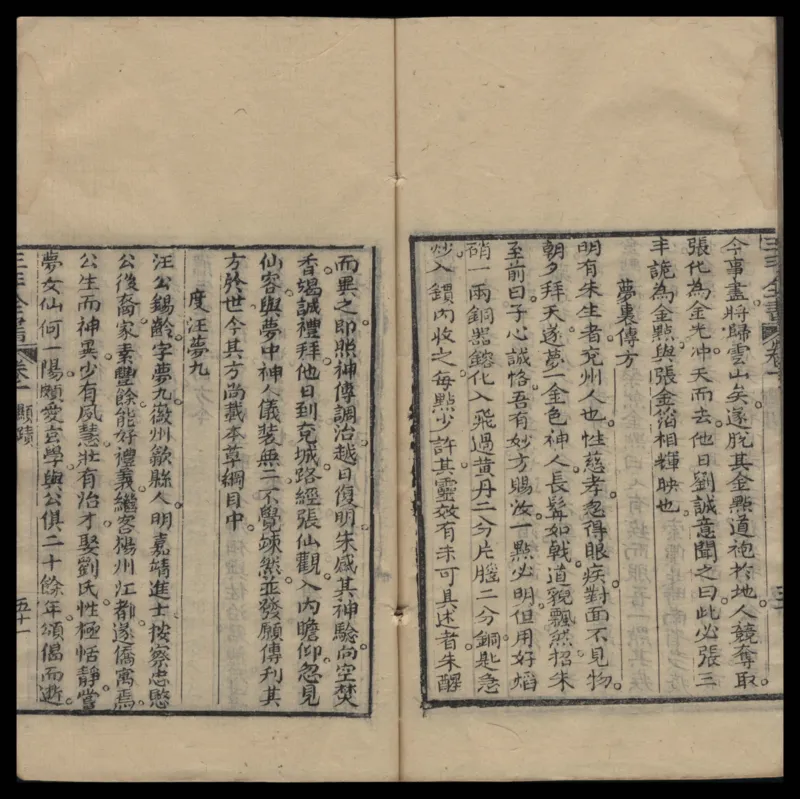 三丰全書 卷一
今事盡將歸雲山矣遂脫其金點道袍於地人競奪取
張化為金光冲天而去他日劉誠意聞之曰此必張三
丰詭為金點與張金箔相輝映也
夢裏傳方
明有朱生者兗州人也性慈孝忽得眼疾對面不見物
朝夕拜天遂夢一金色神人長髯如戟道貌飄然招朱
至前曰子心誠恪吾有妙方賜汝一點必明但用好焰
硝一兩銅器鎔化入飛過黃丹二分片腦二分銅匙急
炒入鑵內收之每點少許其靈效有未可具述者朱醒
而異之即照神傳調治越日復明朱感其神驗向空焚
香竭誠禮拜他日到兗城路經張仙觀入內瞻仰忽見
仙容與夢中神人儀裝無二不覺竦然並發願傳刊其
方於世今其方尚載本草綱目中
度汪夢九
汪公錫齡字夢九徽州歙縣人明嘉靖進士按察忠愍
公後裔家素豐餘能好禮義繼客楊州江都遂僑寓焉
公生而神異少有夙慧壯有治才娶劉氏性極恬靜嘗
夢女仙何一陽頗愛玄學與公俱二十餘年頌偈而逝
三丰全書 卷一 顯蹟 五十一